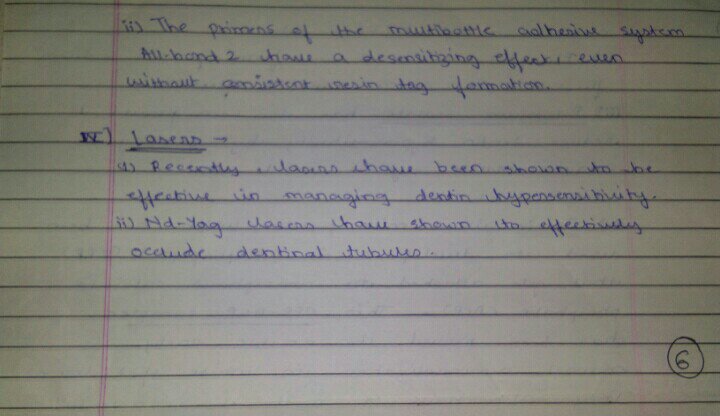 ii) The primers of the multibottle adhesive system
All-bond 2 have a desensitizing effect, even
without consistent resin tag formation.
IV) Lasers →
i) Recently, lasers have been shown to be
effective in managing dentin hypersensitivity.
ii) Nd-Yag lasers have shown to effectively
occlude dentinal tubules.
6